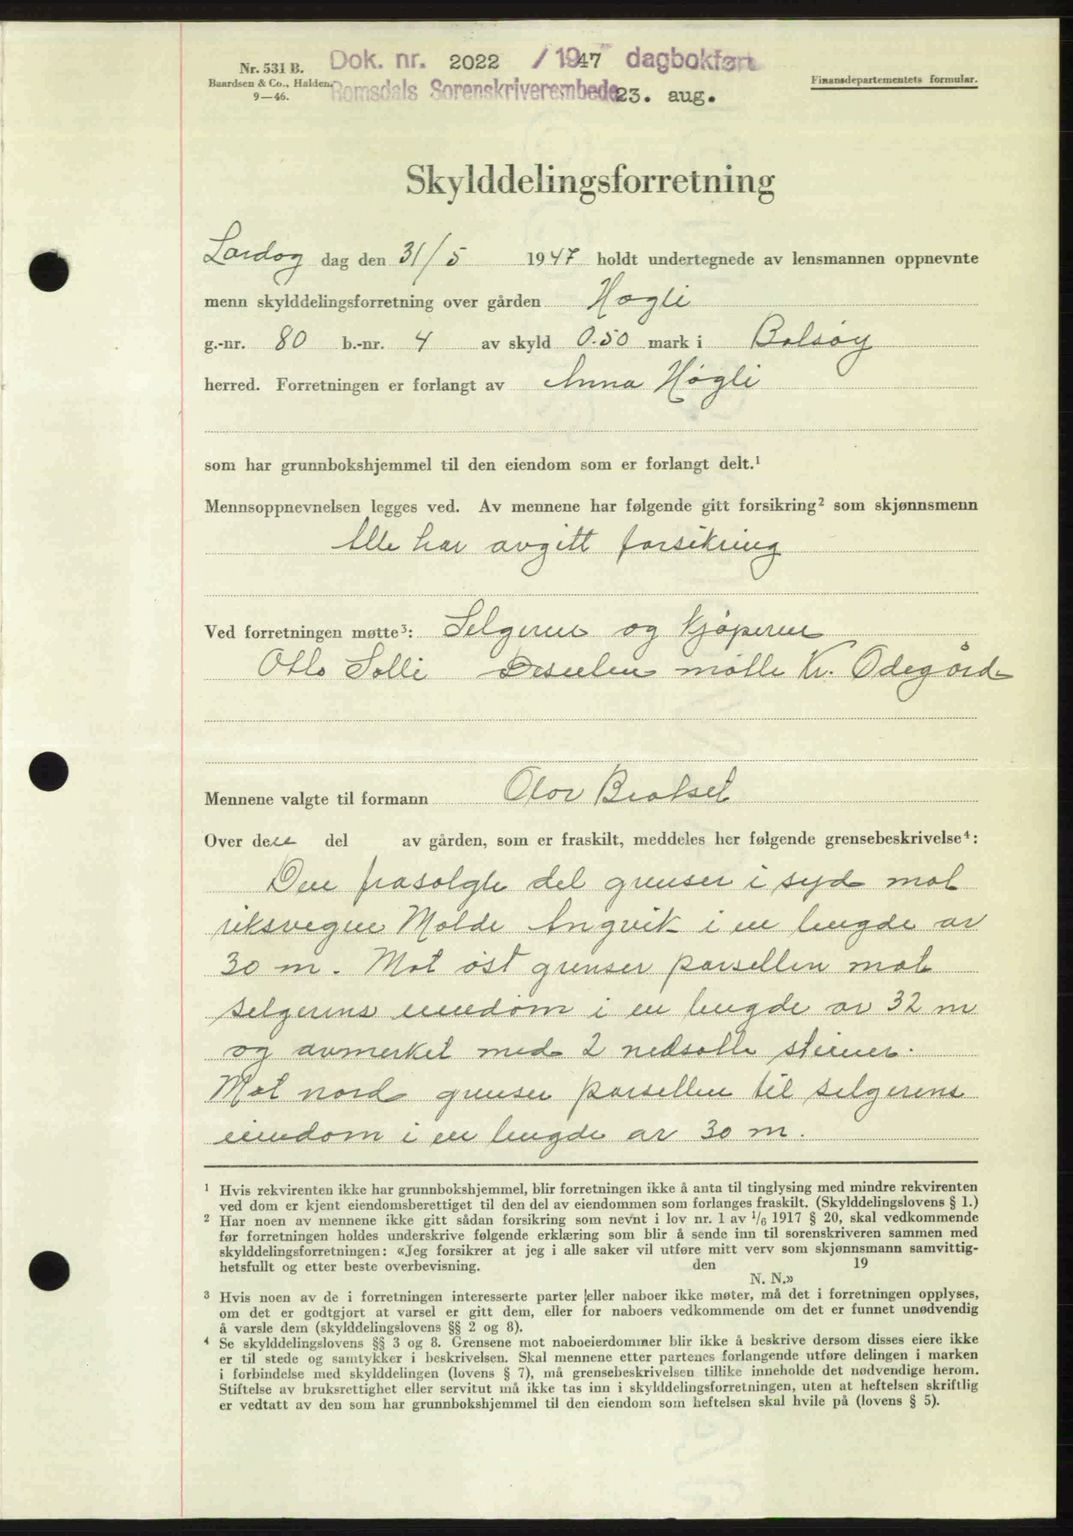 Nr. 531 B.
Baardsen & Co., Halden.
9—46.
Dok. nr. 2022 / 1947 dagbokført
Romsdals Sorenskriverembede 23. aug.
Finansdepartementets formular.
Skylddelingsforretning
Lørdag dag den 31/5 1947 holdt undertegnede av lensmannen oppnevnte
menn skylddelingsforretning over gården Høgli
g.-nr. 80 b.-nr. 4 av skyld 0.50 mark i Bolsøy
herred. Forretningen er forlangt av Anna Høgli
som har grunnbokshjemmel til den eiendom som er forlangt delt.¹
Mennsoppnevnelsen legges ved. Av mennene har følgende gitt forsikring² som skjønnsmenn
Alle har avgitt forsikring
Ved forretningen møtte³: Selgeren og kjøperen
Otto Solli Desuten møtte Kr. Ødegård
Mennene valgte til formann Olav
Over den del av gården, som er fraskilt, meddeles her følgende grensebeskrivelse⁴:
Den frasolgte del grenser i syd mot
riksvegen Molde Angvik i en lengde av
30 m. Mot øst grenser parsellen mot
selgerens eiendom i en lengde av 32 m
og avmerket med 2 nedsatte steiner.
Mot nord grenser parsellen til selgerens
eiendom i en lengde av 30 m.
¹ Hvis rekvirenten ikke har grunnbokshjemmel, blir forretningen ikke å anta til tinglysing med mindre rekvirenten
ved dom er kjent eiendomsberettiget til den del av eiendommen som forlanges fraskilt. (Skylddelingslovens § 1.)
² Har noen av mennene ikke gitt sådan forsikring som nevnt i lov nr. 1 av 1/6 1917 § 20, skal vedkommende
før forretningen holdes underskrive følgende erklæring som blir å sende inn til sorenskriveren sammen med
skylddelingsforretningen: «Jeg forsikrer at jeg i alle saker vil utføre mitt verv som skjønnsmann samvittig-
hetsfullt og etter beste overbevisning. den 19
N. N.»
³ Hvis noen av de i forretningen interesserte parter eller naboer ikke møter, må det i forretningen opplyses,
om det er godtgjort at varsel er gitt dem, eller for naboers vedkommende om det er funnet unødvendig
å varsle dem (skylddelingslovens §§ 2 og 8).
⁴ Se skylddelingslovens §§ 3 og 8. Grensene mot naboeierdommer blir ikke å beskrive dersom disses eiere ikke
er til stede og samtykker i beskrivelsen. Skal mennene etter partenes forlangende utføre delingen i marken
i forbindelse med skylddelingen (lovens § 7), må grensebeskrivelsen tillike inneholde det nødvendige herom.
Stiftelse av bruksrettighet eller servitut må ikke tas inn i skylddelingsforretningen, uten at heftelsen skriftlig
er vedtatt av den som har grunnbokshjemmel til den eiendom som heftelsen skal hvile på (lovens § 5).